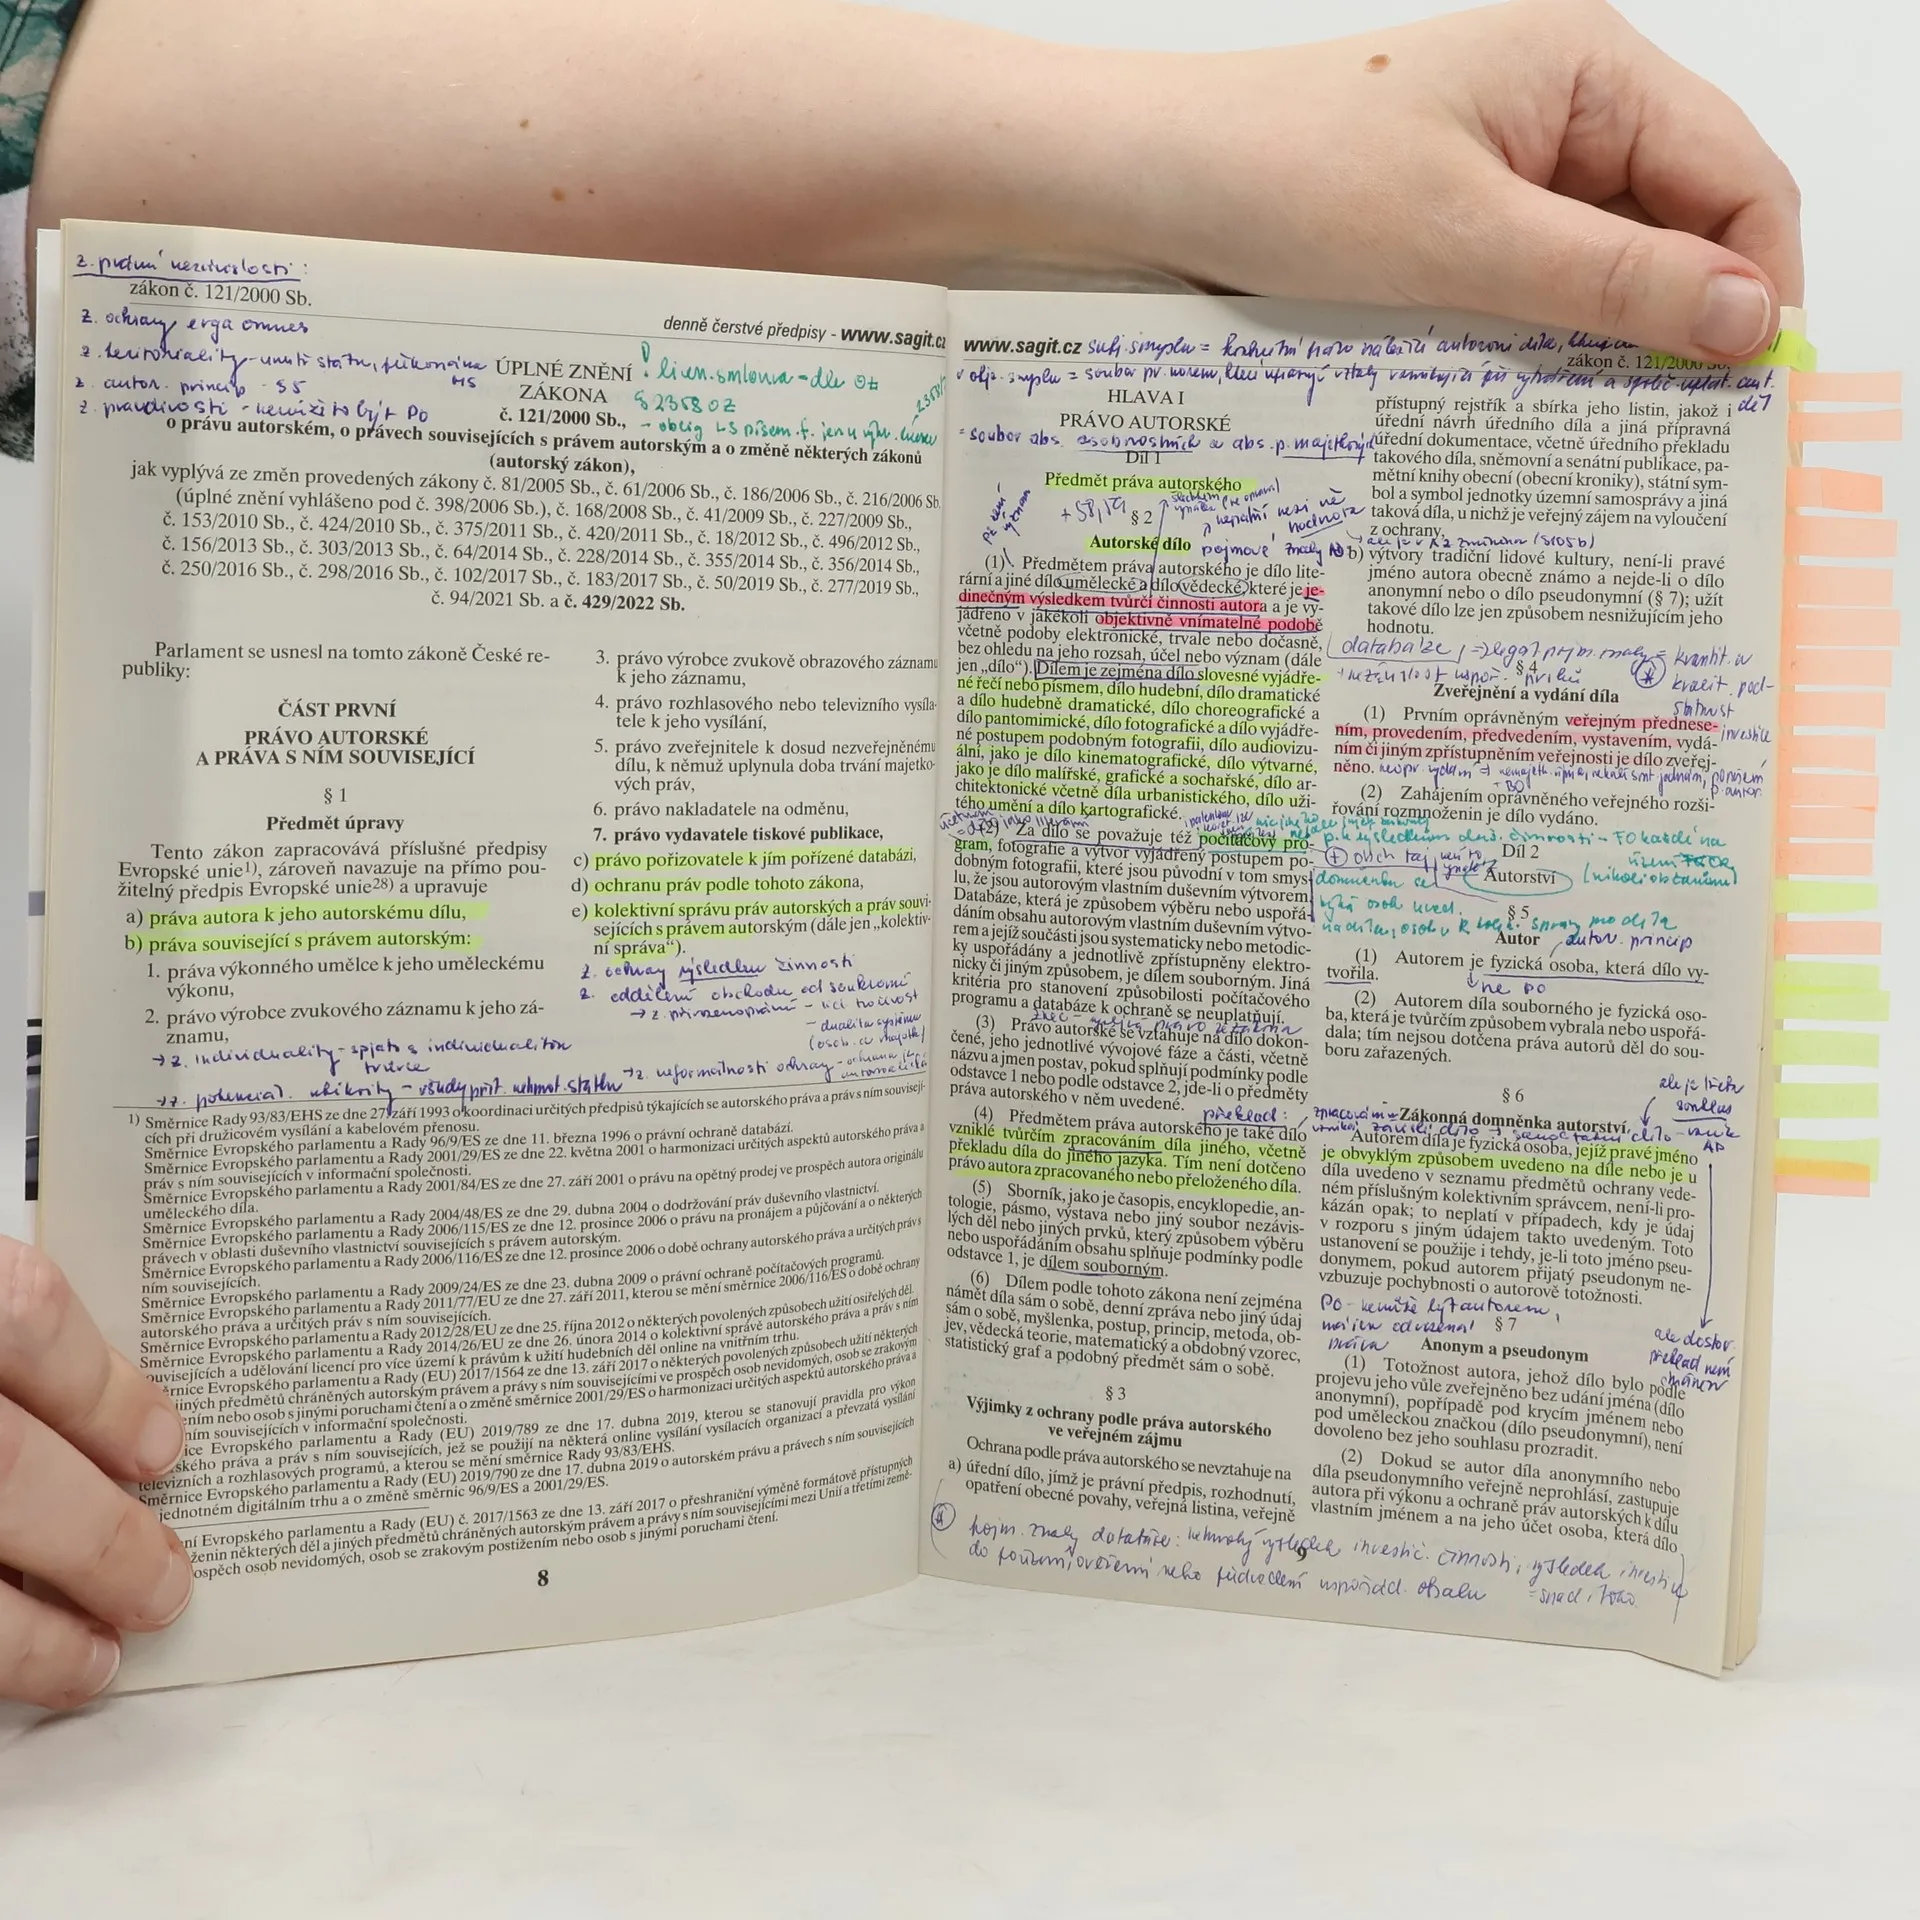 z. právní nezávislosti:
zákon č. 121/2000 Sb.
z. ochrany erga omnes
z. teritoriality - uvnitř státu, překonána MS
z. autor. princip - §5
z. pravdivosti - nemůže to být PO
denně čerstvé předpisy - www.sagit.cz
ÚPLNÉ ZNĚNÍ
ZÁKONA
č. 121/2000 Sb.,
! licen. smlouva - dle OZ
§ 2358 OZ
o právu autorském, o právech souvisejících s právem autorským a o změně některých zákonů
(autorský zákon),
jak vyplývá ze změn provedených zákony č. 81/2005 Sb., č. 61/2006 Sb., č. 186/2006 Sb., č. 216/2006 Sb.
(úplné znění vyhlášeno pod č. 398/2006 Sb.), č. 168/2008 Sb., č. 41/2009 Sb., č. 227/2009 Sb.,
č. 153/2010 Sb., č. 424/2010 Sb., č. 375/2011 Sb., č. 420/2011 Sb., č. 18/2012 Sb., č. 496/2012 Sb.,
č. 156/2013 Sb., č. 303/2013 Sb., č. 64/2014 Sb., č. 228/2014 Sb., č. 355/2014 Sb., č. 356/2014 Sb.,
č. 250/2016 Sb., č. 298/2016 Sb., č. 102/2017 Sb., č. 183/2017 Sb., č. 50/2019 Sb., č. 277/2019 Sb.,
č. 94/2021 Sb. a č. 429/2022 Sb.
Parlament se usnesl na tomto zákoně České re-
publiky:
ČÁST PRVNÍ
PRÁVO AUTORSKÉ
A PRÁVA S NÍM SOUVISEJÍCÍ
§ 1
Předmět úpravy
Tento zákon zapracovává příslušné předpisy
Evropské unie1), zároveň navazuje na přímo pou-
žitelný předpis Evropské unie28) a upravuje
a) práva autora k jeho autorskému dílu,
b) práva související s právem autorským:
1. práva výkonného umělce k jeho uměleckému
výkonu,
2. právo výrobce zvukového záznamu k jeho zá-
znamu,
→ z. individuality - spjato s individualitou
tvůrce
3. právo výrobce zvukově obrazového záznamu
k jeho záznamu,
4. právo rozhlasového nebo televizního vysíla-
tele k jeho vysílání,
5. právo zveřejnitele k dosud nezveřejněnému
dílu, k němuž uplynula doba trvání majetko-
vých práv,
6. právo nakladatele na odměnu,
7. právo vydavatele tiskové publikace,
c) právo pořizovatele k jím pořízené databázi,
d) ochranu práv podle tohoto zákona,
e) kolektivní správu práv autorských a práv souvi-
sejících s právem autorským (dále jen „kolektiv-
ní správa“).
z. ochrany výsledku činnosti
z. oddělení obchodu od soukromí
→ z. neformálnosti ochrany
→ z. potenciál. ubikvity - všudypřít. nehmot. statku
1) Směrnice Rady 93/83/EHS ze dne 27. září 1993 o koordinaci určitých předpisů týkajících se autorského práva a práv s ním souvisejí-
cích při družicovém vysílání a kabelovém přenosu.
Směrnice Evropského parlamentu a Rady 96/9/ES ze dne 11. března 1996 o právní ochraně databází.
Směrnice Evropského parlamentu a Rady 2001/29/ES ze dne 22. května 2001 o harmonizaci určitých aspektů autorského práva a
práv s ním souvisejících v informační společnosti.
Směrnice Evropského parlamentu a Rady 2001/84/ES ze dne 27. září 2001 o právu na opětný prodej ve prospěch autora originálu
uměleckého díla.
Směrnice Evropského parlamentu a Rady 2004/48/ES ze dne 29. dubna 2004 o dodržování práv duševního vlastnictví.
Směrnice Evropského parlamentu a Rady 2006/115/ES ze dne 12. prosince 2006 o právu na pronájem a půjčování a o některých
právech v oblasti duševního vlastnictví souvisejících s právem autorským.
Směrnice Evropského parlamentu a Rady 2006/116/ES ze dne 12. prosince 2006 o době ochrany autorského práva a určitých práv s
ním souvisejících.
Směrnice Evropského parlamentu a Rady 2009/24/ES ze dne 23. dubna 2009 o právní ochraně počítačových programů.
Směrnice Evropského parlamentu a Rady 2011/77/EU ze dne 27. září 2011, kterou se mění směrnice 2006/116/ES o době ochrany
autorského práva a určitých práv s ním souvisejících.
Směrnice Evropského parlamentu a Rady 2012/28/EU ze dne 25. října 2012 o některých povolených způsobech užití osiřelých děl.
Směrnice Evropského parlamentu a Rady 2014/26/EU ze dne 26. února 2014 o kolektivní správě autorského práva a práv s ním
ouvisejících a udělování licencí pro více území k právům k užití hudebních děl online na vnitřním trhu.
rnice Evropského parlamentu a Rady (EU) 2017/1564 ze dne 13. září 2017 o některých povolených způsobech užití některých
jiných předmětů chráněných autorským právem a právy s ním souvisejícími ve prospěch osob nevidomých, osob se zrakovým
ením nebo osob s jinými poruchami čtení a o změně směrnice 2001/29/ES o harmonizaci určitých aspektů autorského práva a
ním souvisejících v informační společnosti.
ice Evropského parlamentu a Rady (EU) 2019/789 ze dne 17. dubna 2019, kterou se stanoví pravidla pro výkon
ského práva a práv s ním souvisejících, jež se použijí na některá online vysílání vysílacích organizací a převzatá vysílání
televizních a rozhlasových programů, a kterou se mění směrnice Rady 93/83/EHS.
Směrnice Evropského parlamentu a Rady (EU) 2019/790 ze dne 17. dubna 2019 o autorském právu a právech s ním souvisejících
jednotném digitálním trhu a o změně směrnic 96/9/ES a 2001/29/ES.
ní Evropského parlamentu a Rady (EU) č. 2017/1563 ze dne 13. září 2017 o přeshraniční výměně formátově přístupných
ženin některých děl a jiných předmětů chráněných autorským právem a právy s ním souvisejícími mezi Unií a třetími země-
ospěch osob nevidomých, osob se zrakovým postižením nebo osob s jinými poruchami čtení.
8
www.sagit.cz
zákon č. 121/2000 Sb.
HLAVA I
PRÁVO AUTORSKÉ
= soubor abs. osobnostních a abs. p. majetkových
Díl 1
Předmět práva autorského
§ 2
Autorské dílo
pojmové znaky AD
(1) Předmětem práva autorského je dílo lite-
rární a jiné dílo umělecké a dílo vědecké, které je je-
dinečným výsledkem tvůrčí činnosti autora a je vy-
jádřeno v jakékoli objektivně vnímatelné podobě
včetně podoby elektronické, trvale nebo dočasně,
bez ohledu na jeho rozsah, účel nebo význam (dále
jen „dílo“). Dílem je zejména dílo slovesné vyjádře-
né řečí nebo písmem, dílo hudební, dílo dramatické
a dílo hudebně dramatické, dílo choreografické a
dílo pantomimické, dílo fotografické a dílo vyjádře-
né postupem podobným fotografii, dílo audiovizu-
ální, jako je dílo kinematografické, dílo výtvarné,
jako je dílo malířské, grafické a sochařské, dílo ar-
chitektonické včetně díla urbanistického, dílo uži-
tého umění a dílo kartografické.
(2) Za dílo se považuje též počítačový pro-
gram, fotografie a výtvor vyjádřený postupem po-
dobným fotografii, které jsou původní v tom smys-
lu, že jsou autorovým vlastním duševním výtvorem.
Databáze, která je způsobem výběru nebo uspořá-
dáním obsahu autorovým vlastním duševním výtvo-
rem a jejíž součásti jsou systematicky nebo metodic-
ky uspořádány a jednotlivě zpřístupněny elektro-
nicky či jiným způsobem, je dílem souborným. Jiná
kritéria pro stanovení způsobilosti počítačového
programu a databáze k ochraně se neuplatňují.
(3) Právo autorské se vztahuje na dílo dokon-
čené, jeho jednotlivé vývojové fáze a části, včetně
názvu a jmen postav, pokud splňují podmínky podle
odstavce 1 nebo podle odstavce 2, jde-li o předměty
práva autorského v něm uvedené.
překlad:
(4) Předmětem práva autorského je také dílo
vzniklé tvůrčím zpracováním díla jiného, včetně
překladu díla do jiného jazyka. Tím není dotčeno
právo autora zpracovaného nebo přeloženého díla.
(5) Sborník, jako je časopis, encyklopedie, an-
tologie, pásmo, výstava nebo jiný soubor nezávis-
lých děl nebo jiných prvků, který způsobem výběru
nebo uspořádáním obsahu splňuje podmínky podle
odstavce 1, je dílem souborným.
(6) Dílem podle tohoto zákona není zejména
námět díla sám o sobě, denní zpráva nebo jiný údaj
sám o sobě, myšlenka, postup, princip, metoda, ob-
jev, vědecká teorie, matematický a obdobný vzorec,
statistický graf a podobný předmět sám o sobě.
§ 3
Výjimky z ochrany podle práva autorského
ve veřejném zájmu
Ochrana podle práva autorského se nevztahuje na
a) úřední dílo, jímž je právní předpis, rozhodnutí,
opatření obecné povahy, veřejná listina, veřejně
přístupný rejstřík a sbírka jeho listin, jakož i
úřední návrh úředního díla a jiná přípravná
úřední dokumentace, včetně úředního překladu
takového díla, sněmovní a senátní publikace, pa-
mětní knihy obecní (obecní kroniky), státní sym-
bol a symbol jednotky územní samosprávy a jiná
taková díla, u nichž je veřejný zájem na vyloučení
z ochrany,
b) výtvory tradiční lidové kultury, není-li pravé
jméno autora obecně známo a nejde-li o dílo
anonymní nebo o dílo pseudonymní (§ 7); užít
takové dílo lze jen způsobem nesnižujícím jeho
hodnotu.
§ 4
Zveřejnění a vydání díla
(1) Prvním oprávněným veřejným přednese-
ním, provedením, předvedením, vystavením, vydá-
ním či jiným zpřístupněním veřejnosti je dílo zveřej-
něno.
(2) Zahájením oprávněného veřejného rozši-
řování rozmnoženin je dílo vydáno.
Díl 2
Autorství
§ 5
Autor
autor. princip
(1) Autorem je fyzická osoba, která dílo vy-
tvořila.
↓ ne PO
(2) Autorem díla souborného je fyzická oso-
ba, která je tvůrčím způsobem vybrala nebo uspořá-
dala; tím nejsou dotčena práva autorů děl do sou-
boru zařazených.
§ 6
Zákonná domněnka autorství
Autorem díla je fyzická osoba, jejíž pravé jméno
je obvyklým způsobem uvedeno na díle nebo je u
díla uvedeno v seznamu předmětů ochrany vede-
ném příslušným kolektivním správcem, není-li pro-
kázán opak; to neplatí v případech, kdy je údaj
v rozporu s jiným údajem takto uvedeným. Toto
ustanovení se použije i tehdy, je-li toto jméno pseu-
donymem, pokud autorem přijatý pseudonym ne-
vzbuzuje pochybnosti o autorově totožnosti.
PO - nemůže být autorem,
má jen odvozená
práva
§ 7
Anonym a pseudonym
(1) Totožnost autora, jehož dílo bylo podle
projevu jeho vůle zveřejněno bez udání jména (dílo
anonymní), popřípadě pod krycím jménem nebo
pod uměleckou značkou (dílo pseudonymní), není
dovoleno bez jeho souhlasu prozradit.
(2) Dokud se autor díla anonymního nebo
díla pseudonymního veřejně neprohlásí, zastupuje
autora při výkonu a ochraně práv autorských k dílu
vlastním jménem a na jeho účet osoba, která dílo
9